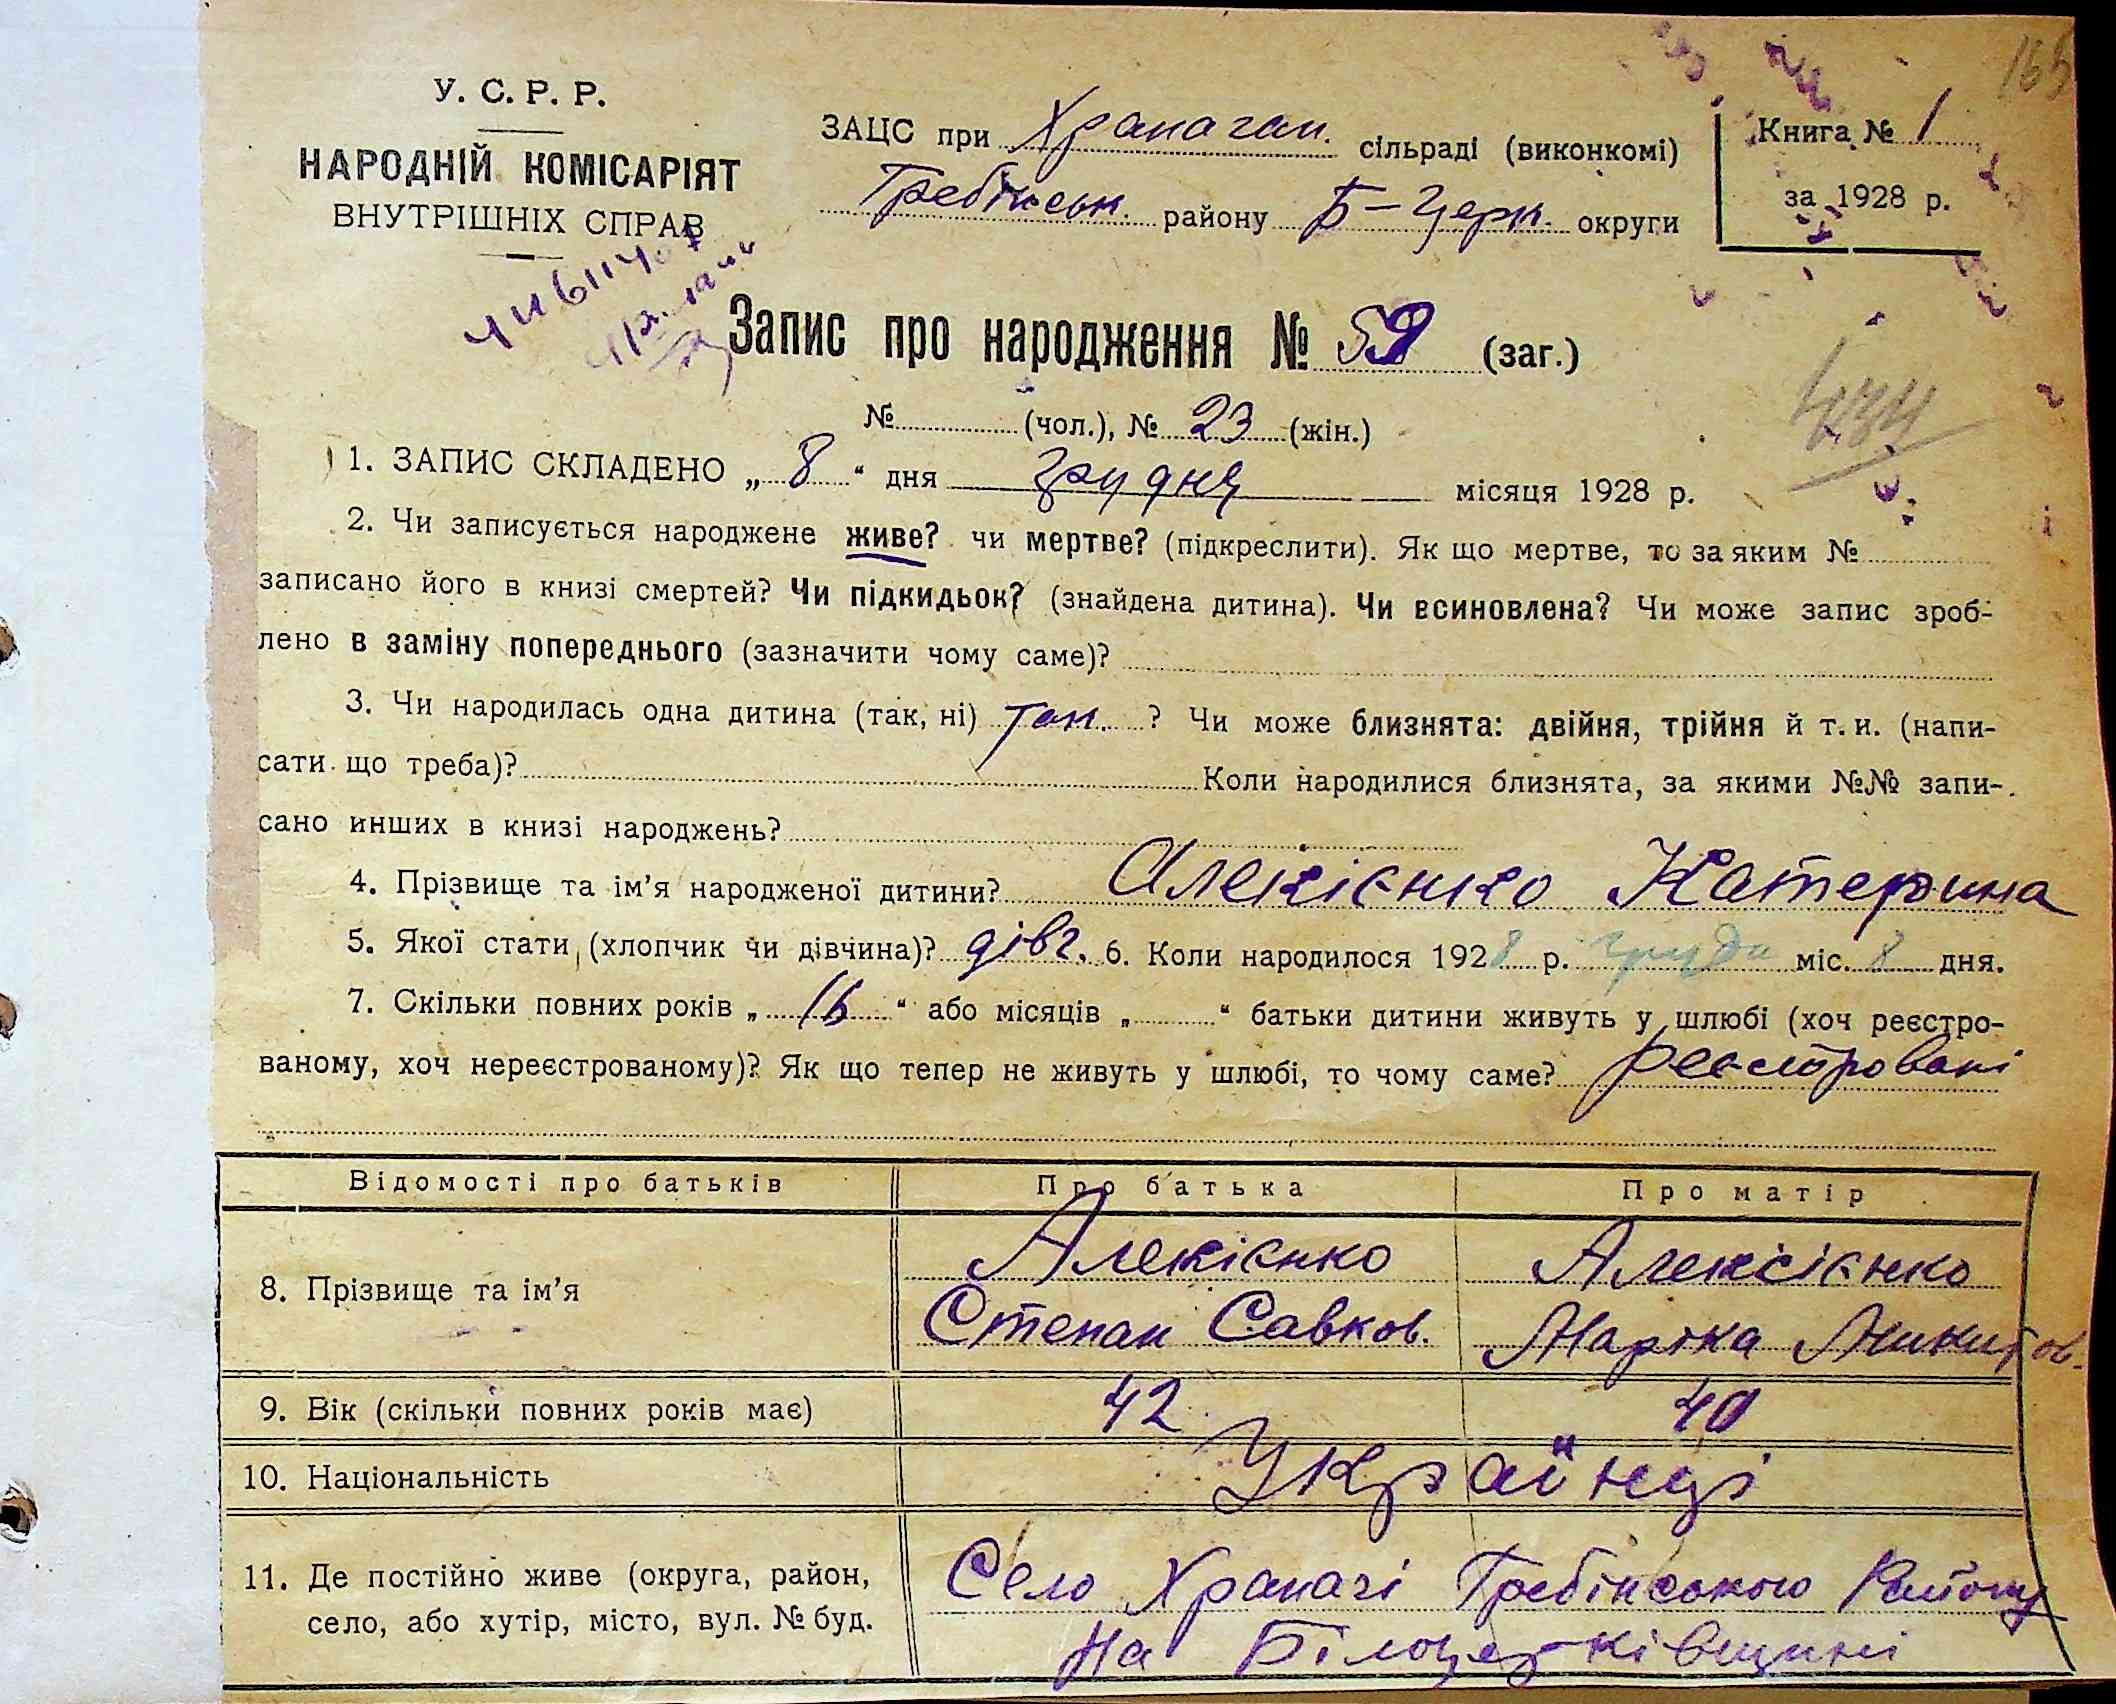 165
У. С. Р. Р.
НАРОДНІЙ КОМІСАРІЯТ
ВНУТРІШНІХ СПРАВ
ЗАЦС при Храпачан. сільраді (виконкомі)
Гребінськ. району Б-Церк. округи
Книга № 1
за 1928 р.
Запис про народження № 59 (заг.)
№ (чол.), № 23 (жін.)
1. ЗАПИС СКЛАДЕНО „ 8 “ дня грудня місяця 1928 р.
2. Чи записується народжене живе? чи мертве? (підкреслити). Як що мертве, то за яким №
записано його в книзі смертей? Чи підкидьок? (знайдена дитина). Чи всиновлена? Чи може запис зроб-
лено в заміну попереднього (зазначити чому саме)?
3. Чи народилась одна дитина (так, ні) так. ? Чи може близнята: двійня, трійня й т. и. (напи-
сати що треба)? Коли народилися близнята, за якими №№ запи-
сано инших в книзі народжень?
4. Прізвище та ім’я народженої дитини? Алекієнко Катерина
5. Якої стати (хлопчик чи дівчина)? дівч. 6. Коли народилося 1928 р. грудн міс. 8 дня.
7. Скільки повних років „ 16 “ або місяців „ “ батьки дитини живуть у шлюбі (хоч реєстро-
ваному, хоч нереєстрованому)? Як що тепер не живуть у шлюбі, то чому саме? реєстровані
Відомості про батьків Про батька Про матір
8. Прізвище та ім’я Алекієнко Алексієнко
Степан Савков. Марїка Микитов.
9. Вік (скільки повних років має) 42 40
10. Національність Українці
11. Де постійно живе (округа, район, Село Храпачі Гребінського Району
село, або хутір, місто, вул. № буд. На Білоцерківщині